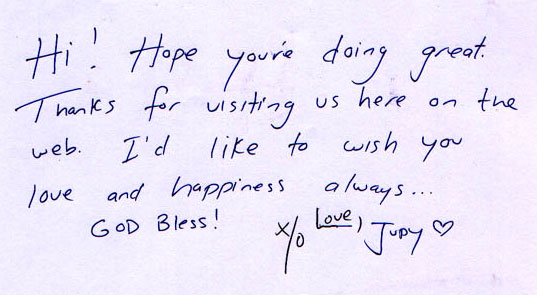 Hi! Hope you're doing great.
Thanks for visiting us here on the
web. I'd like to wish you
love and happiness always...
GOD Bless! x/o Love, Judy ♡